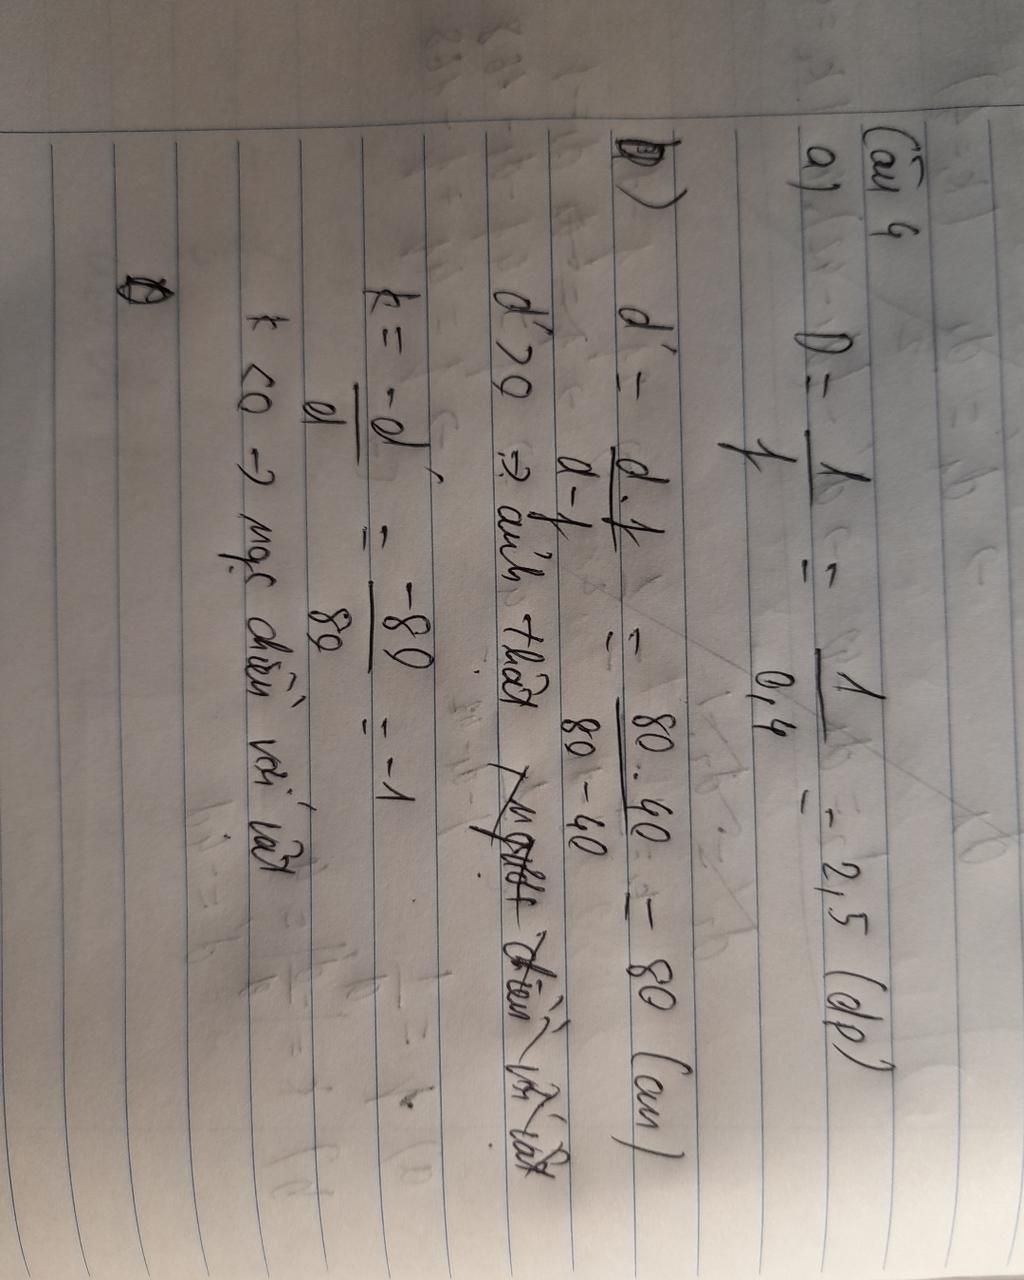 Câu 4
a) D = 1/f = 1/0,4 = 2,5 (dp)
b) d' = d.f/d-f = 80.40/80-40 = 80 (cm)
d' > 0 => ảnh thật
k = -d'/d = -80/80 = -1
k < 0 → ngược chiều với vật